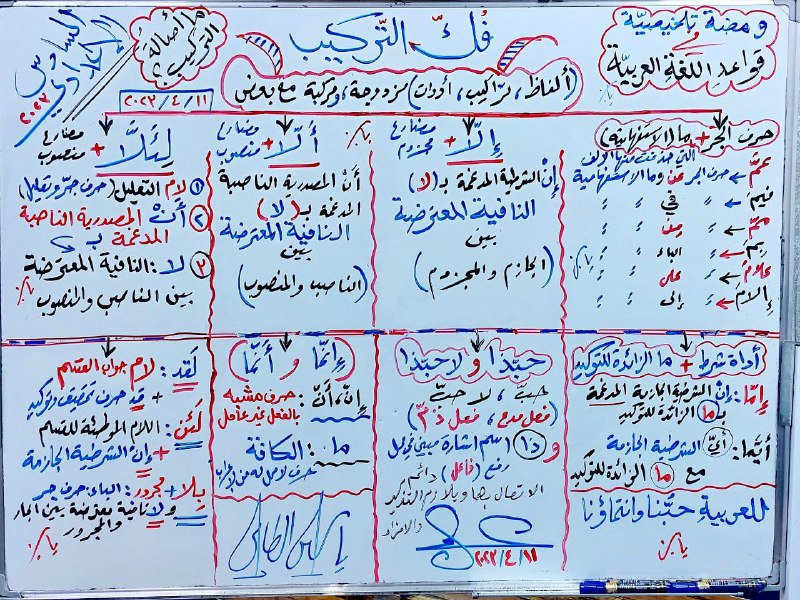 ومضة تلخيصيّة
و
قواعد اللغة العربيّة
فُكّ التّركيب
ما أصالة
التركيب؟
السادس
الإعدادي
٢٠٢٣
(ألفاظ، تراكيب، أدوات) مزدوجة، ومركبة مع بعض
٢٠٢٣/٤/١١
حرف الجر + ما (الاستفهامية)
التي حذفت منها الألف
عمَّ ← حرف الجر عن وما الاستفهامية
فيمَ ← " في " "
ممَّ ← " من " "
بِمَ ← " الباء " "
علامَ ← " على " "
إلامَ ← " إلى " "
إلّا + مضارع مجزوم
إنْ الشرطية المدغمة بـ (لا)
النافية المعترضة
بين
(الجازم والمجزوم)
ألّا + مضارع منصوب
أنْ المصدرية الناصبة
المدغمة بـ (لا)
النافية المعترضة
بين
(الناصب والمنصوب)
لِئلّا + مضارع منصوب
١ لام التعليل (حرف جر وتعليل)
٢ أنْ المصدرية الناصبة
المدغمة بـ
٣ لا: النافية المعترضة
بين الناصب والمنصوب
أداة شرط + ما الزائدة للتوكيد
إمّا: إنْ الشرطية الجازمة المدغمة
بـ ما الزائدة للتوكيد
أيّما: أيّ الشرطية الجازمة
مع ما الزائدة للتوكيد
للعربيةِ حبّنا وانتماؤنا
حبّذا ولا حبّذا
حبَّ، لا حبَّ
(فعل مدح، فعل ذمّ)
و (ذا) اسم اشارة مبني في محل
رفع (فاعل) دائم
الاتصال بها ويلازم التذكير
والافراد
٢٠٢٣/٤/١١
إنّما و أنّما
إنّ، أنّ: حرف مشبه
بالفعل غير عامل
ما: الكافة
حرف لا محل له من الإعراب
لَقد: لام جواب القسم
+ قد حرف تحقيق وتوكيد
لَئن: اللام الموطئة للقسم
+ إن الشرطية الجازمة
بِلا + مجرور: الباء: حرف جر
و لا نافية معترضة بين الجار
والمجرور